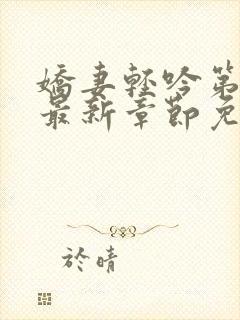 嬌妻輕吟第
最新章節免
於晴